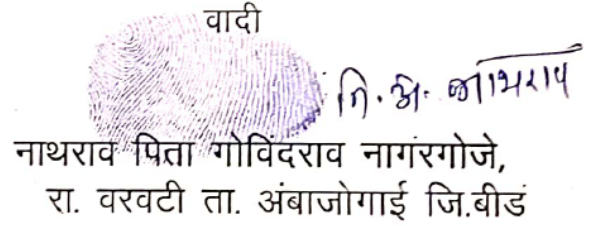 वादी
नि. अं. नाथराव
नाथराव पिता गोविंदराव नागंरगोजे,
रा. वरवटी ता. अंबाजोगाई जि.बीडं